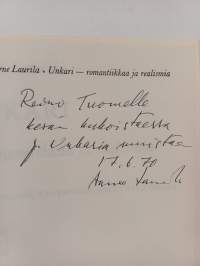 rne Laurila • Unkari — romantiikkaa ja realismia
Reino Tuomelle
kesän kukoistaessa
ja Unkaria muistaen
17.6.70